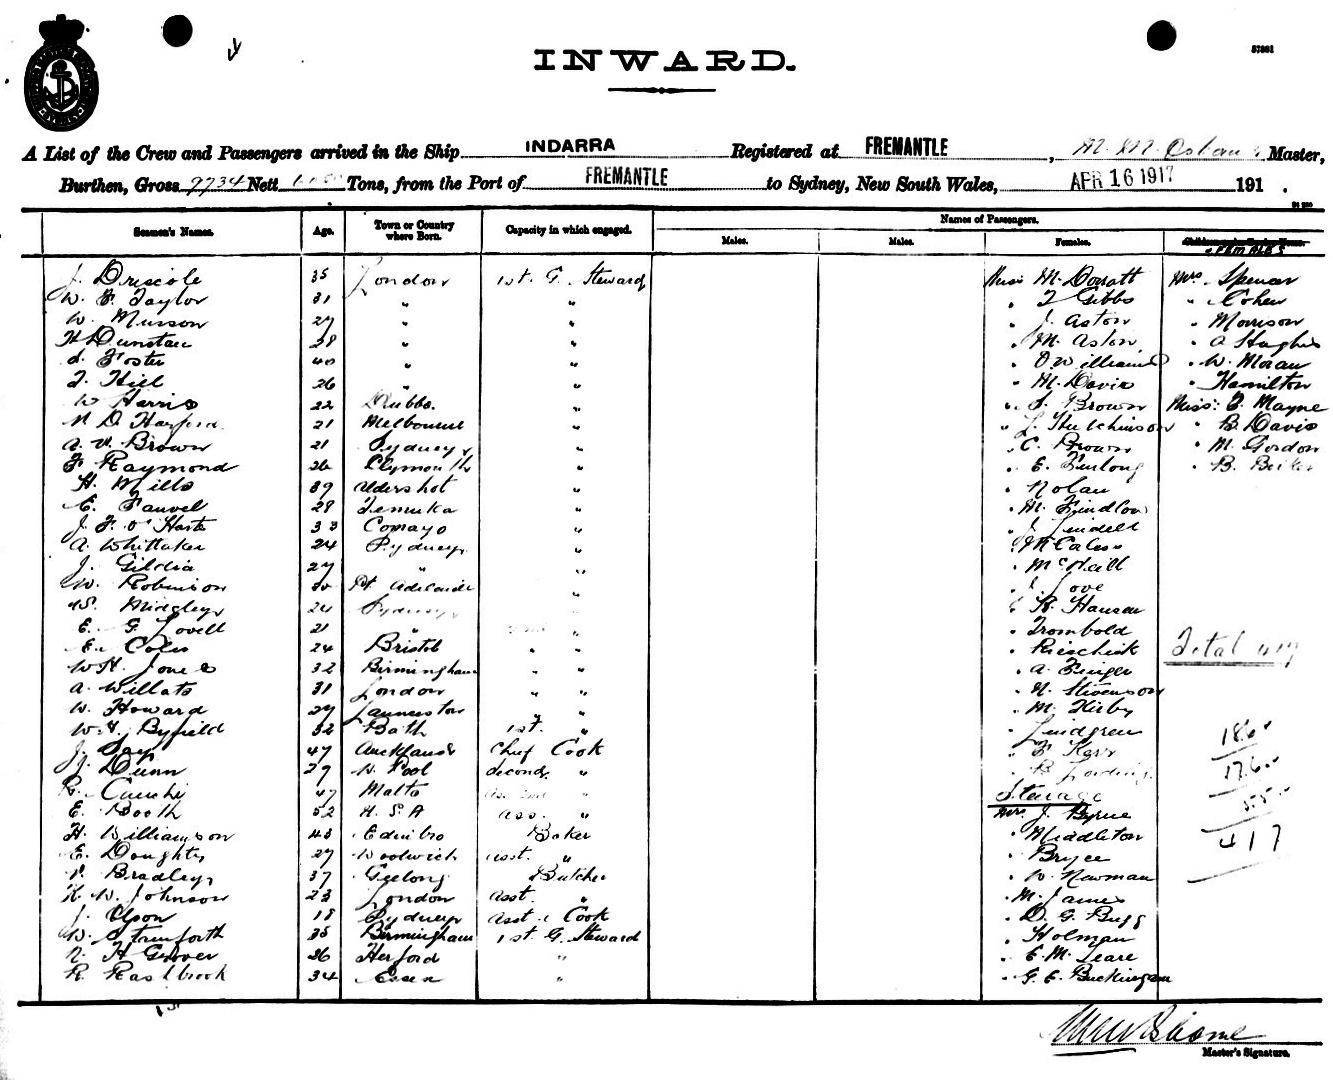 57301
INWARD.
A List of the Crew and Passengers arrived in the Ship INDARRA Registered at FREMANTLE, M. M. Osborne Master,
Burthen, Gross 9734 Nett Tons, from the Port of FREMANTLE to Sydney, New South Wales, APR 16 1917 191 .
Seamen's Names. Age. Town or Country where Born. Capacity in which engaged. Names of Passengers.
Males. Males. Females. FEMALES
J. Driscole 35 London 1st. G. Steward Miss M. Dorratt Mrs. Spencer
W. E. Taylor 31 " " " T Gibbs " Cohen
W. Musson 27 " " " J. Aston " Morrison
H Dunstan 28 " " " M. Aston " A Hughes
S. Foster 40 " " " O Williams " W. Moran
T. Hill 26 " " " M. Davis " Hamilton
W Harris 22 Dubbo. " " S. Brown Miss: E. Mayne
N D Harford 21 Melbourne " " L. Hutchinson " B. Davis
A. V. Brown 21 Sydney " " C. Brown " M. Gordon
F. Raymond 26 Plymouth " " E. Furlong " B.
H. Mills 39 Aldershot " " Nolan
E. Fauvel 28 Temuka " " M. Findlow
J. F. O'Harte 33 Comayo " " J. Lindell
A. Whittaker 24 Sydney " "
J. Gildia 27 " " " McNeill
W. Robinson 30 Pt Adelaide " " J. Love
W. Midgley 24 Sydney " " B. Hansen
E. G. Lovell 21 " " " Trombold
E. Coles 24 Bristol " " "
W. H. Jones 32 Birmingham " " " A. Finger
A. Willats 31 London " " " N. Stevenson
W. Howard 29 Launceston " " " M. Kirby
W. H. Byfield 32 Bath 1st. " " Lindgren
J. Say 47 Auckland Chief Cook " E Kerr
J. Dunn 29 W. Pool Second "
R. Cauchi 47 Malta Steerage
E. Booth 52 U.S.A Ass. " Mrs. J. Byrne
H. Williamson 43 Edinbro Baker " Middleton
E. Doughty 27 Woolwich Asst. " " Bryce
Bradley 37 Geelong Butcher " W. Newman
H. W. Johnson 23 London Asst. " " M. James
J. Olson 18 Sydney Asst. Cook " D. G. Bugg
W. Strinforth 35 Birmingham 1st. G. Steward " Holman
N. H Grover 36 Herford " " E. M. Leare
R. Rashbrook 34 Essex " " G. E. Buckingham
Total 417
186
176
55
417
Master's Signature.